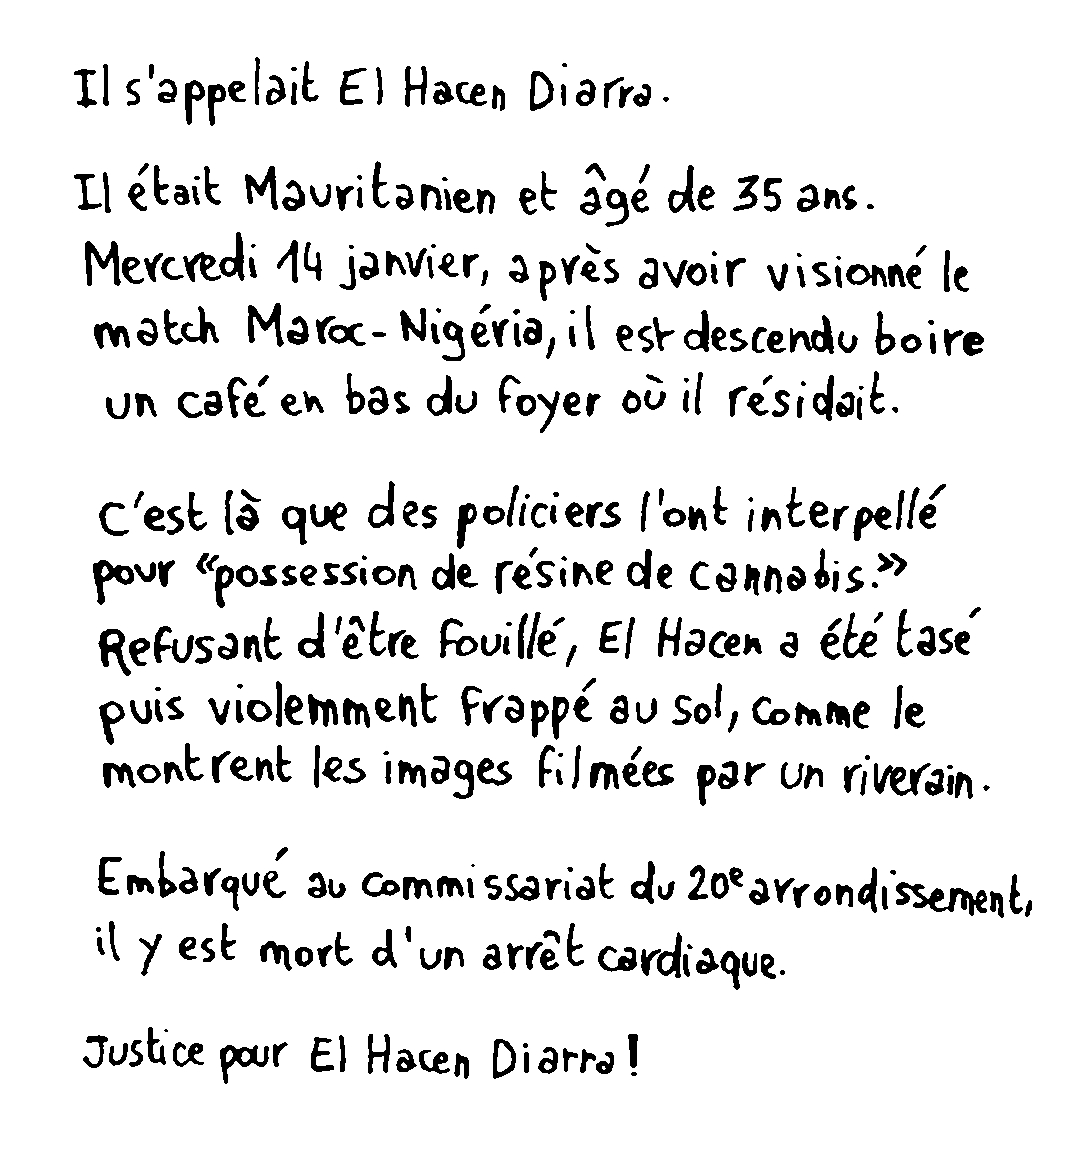 Il s'appelait El Hacen Diarra.
Il était Mauritanien et âgé de 35 ans.
Mercredi 14 janvier, après avoir visionné le
match Maroc-Nigéria, il est descendu boire
un café en bas du foyer où il résidait.
C'est là que des policiers l'ont interpellé
pour “possession de résine de cannabis.”
Refusant d'être fouillé, El Hacen a été tasé
puis violemment frappé au sol, comme le
montrent les images filmées par un riverain.
Embarqué au commissariat du 20e arrondissement,
il y est mort d'un arrêt cardiaque.
Justice pour El Hacen Diarra !